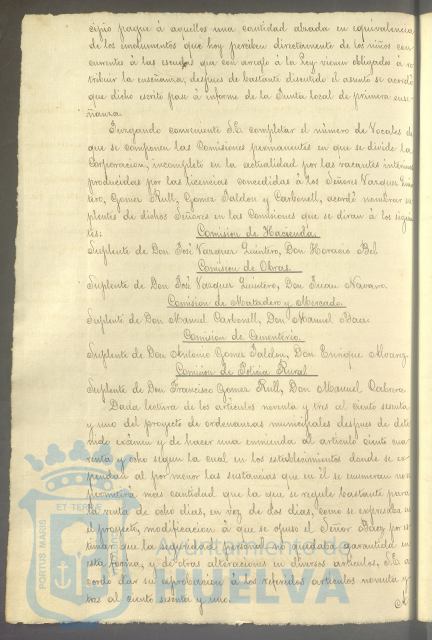 cipio pague á aquellos una cantidad alzada en equivalencia
de los emolumentos que hoy perciben directamente de los niños con-
currentes á las escuelas que con arreglo á la Ley vienen obligados á re-
tribuir la enseñanza, despues de bastante discutido el asunto se acordó
que dicho escrito pase á informe de la Junta local de primera ense-
ñanza.
Juzgando conveniente S.E. completar el número de Vocales de
que se componen las Comisiones permanentes en que se divide la
Corporacion, incompleto en la actualidad por las vacantes interinas
producidas por las licencias concedidas á los Señores Vazquez Quin-
tero, Gomez Rull, Gomez Jaldon y Carbonell, acordó nombrar su-
plentes de dichos Señores en las Comisiones que se diran á los siguien-
tes:
Comision de Hacienda.
Suplente de Don José Vazquez Quintero, Don Horacio Bel
Comision de Obras.
Suplente de Don José Vazquez Quintero, Don Juan Navarro
Comision de Matadero y Mercado.
Suplente de Don Manuel Carbonell, Don Manuel Baez
Comision de Cementerio.
Suplente de Don Antonio Gomez Jaldon, Don Enrique
Comision de Policia Rural
Suplente de Don Francisco Gomez Rull, Don Manuel
Dada lectura de los artículos noventa y tres al ciento sesenta
y uno del proyecto de ordenanzas municipales despues de dete-
nido exámen y de hacer una enmienda al artículo ciento cua-
renta y ocho segun la cual en los establecimientos donde se ex-
pendan al por menor las sustancias que en él se enumeran no se
permitirá más cantidad que la que se regule bastante para
la venta de ocho dias, en vez de dos dias, como se expresaba en
el proyecto, modificacion á que se opuso el Señor Baez por es-
timar que la seguridad personal no quedaba garantida en
esta forma, y de otras alteraciones en diversos artículos, S.E. a-
cordó dar su aprobacion á los referidos artículos noventa y
tres al ciento sesenta y uno.
PORTUS MARIS
ET TERRAE
Ayuntamiento de
HUELVA